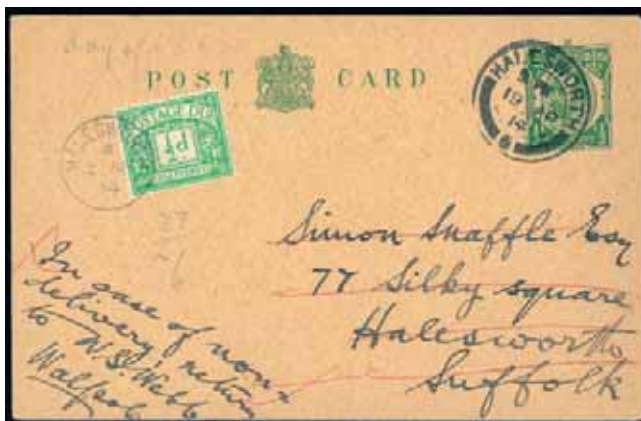 POST CARD
HALESWORTH
19
14
POSTAGE DUE
½D
Simon Snaffle Esq
77 Silky square
Halesworth
Suffolk
In case of non-
delivery return
to W. S. Webb
Walpole